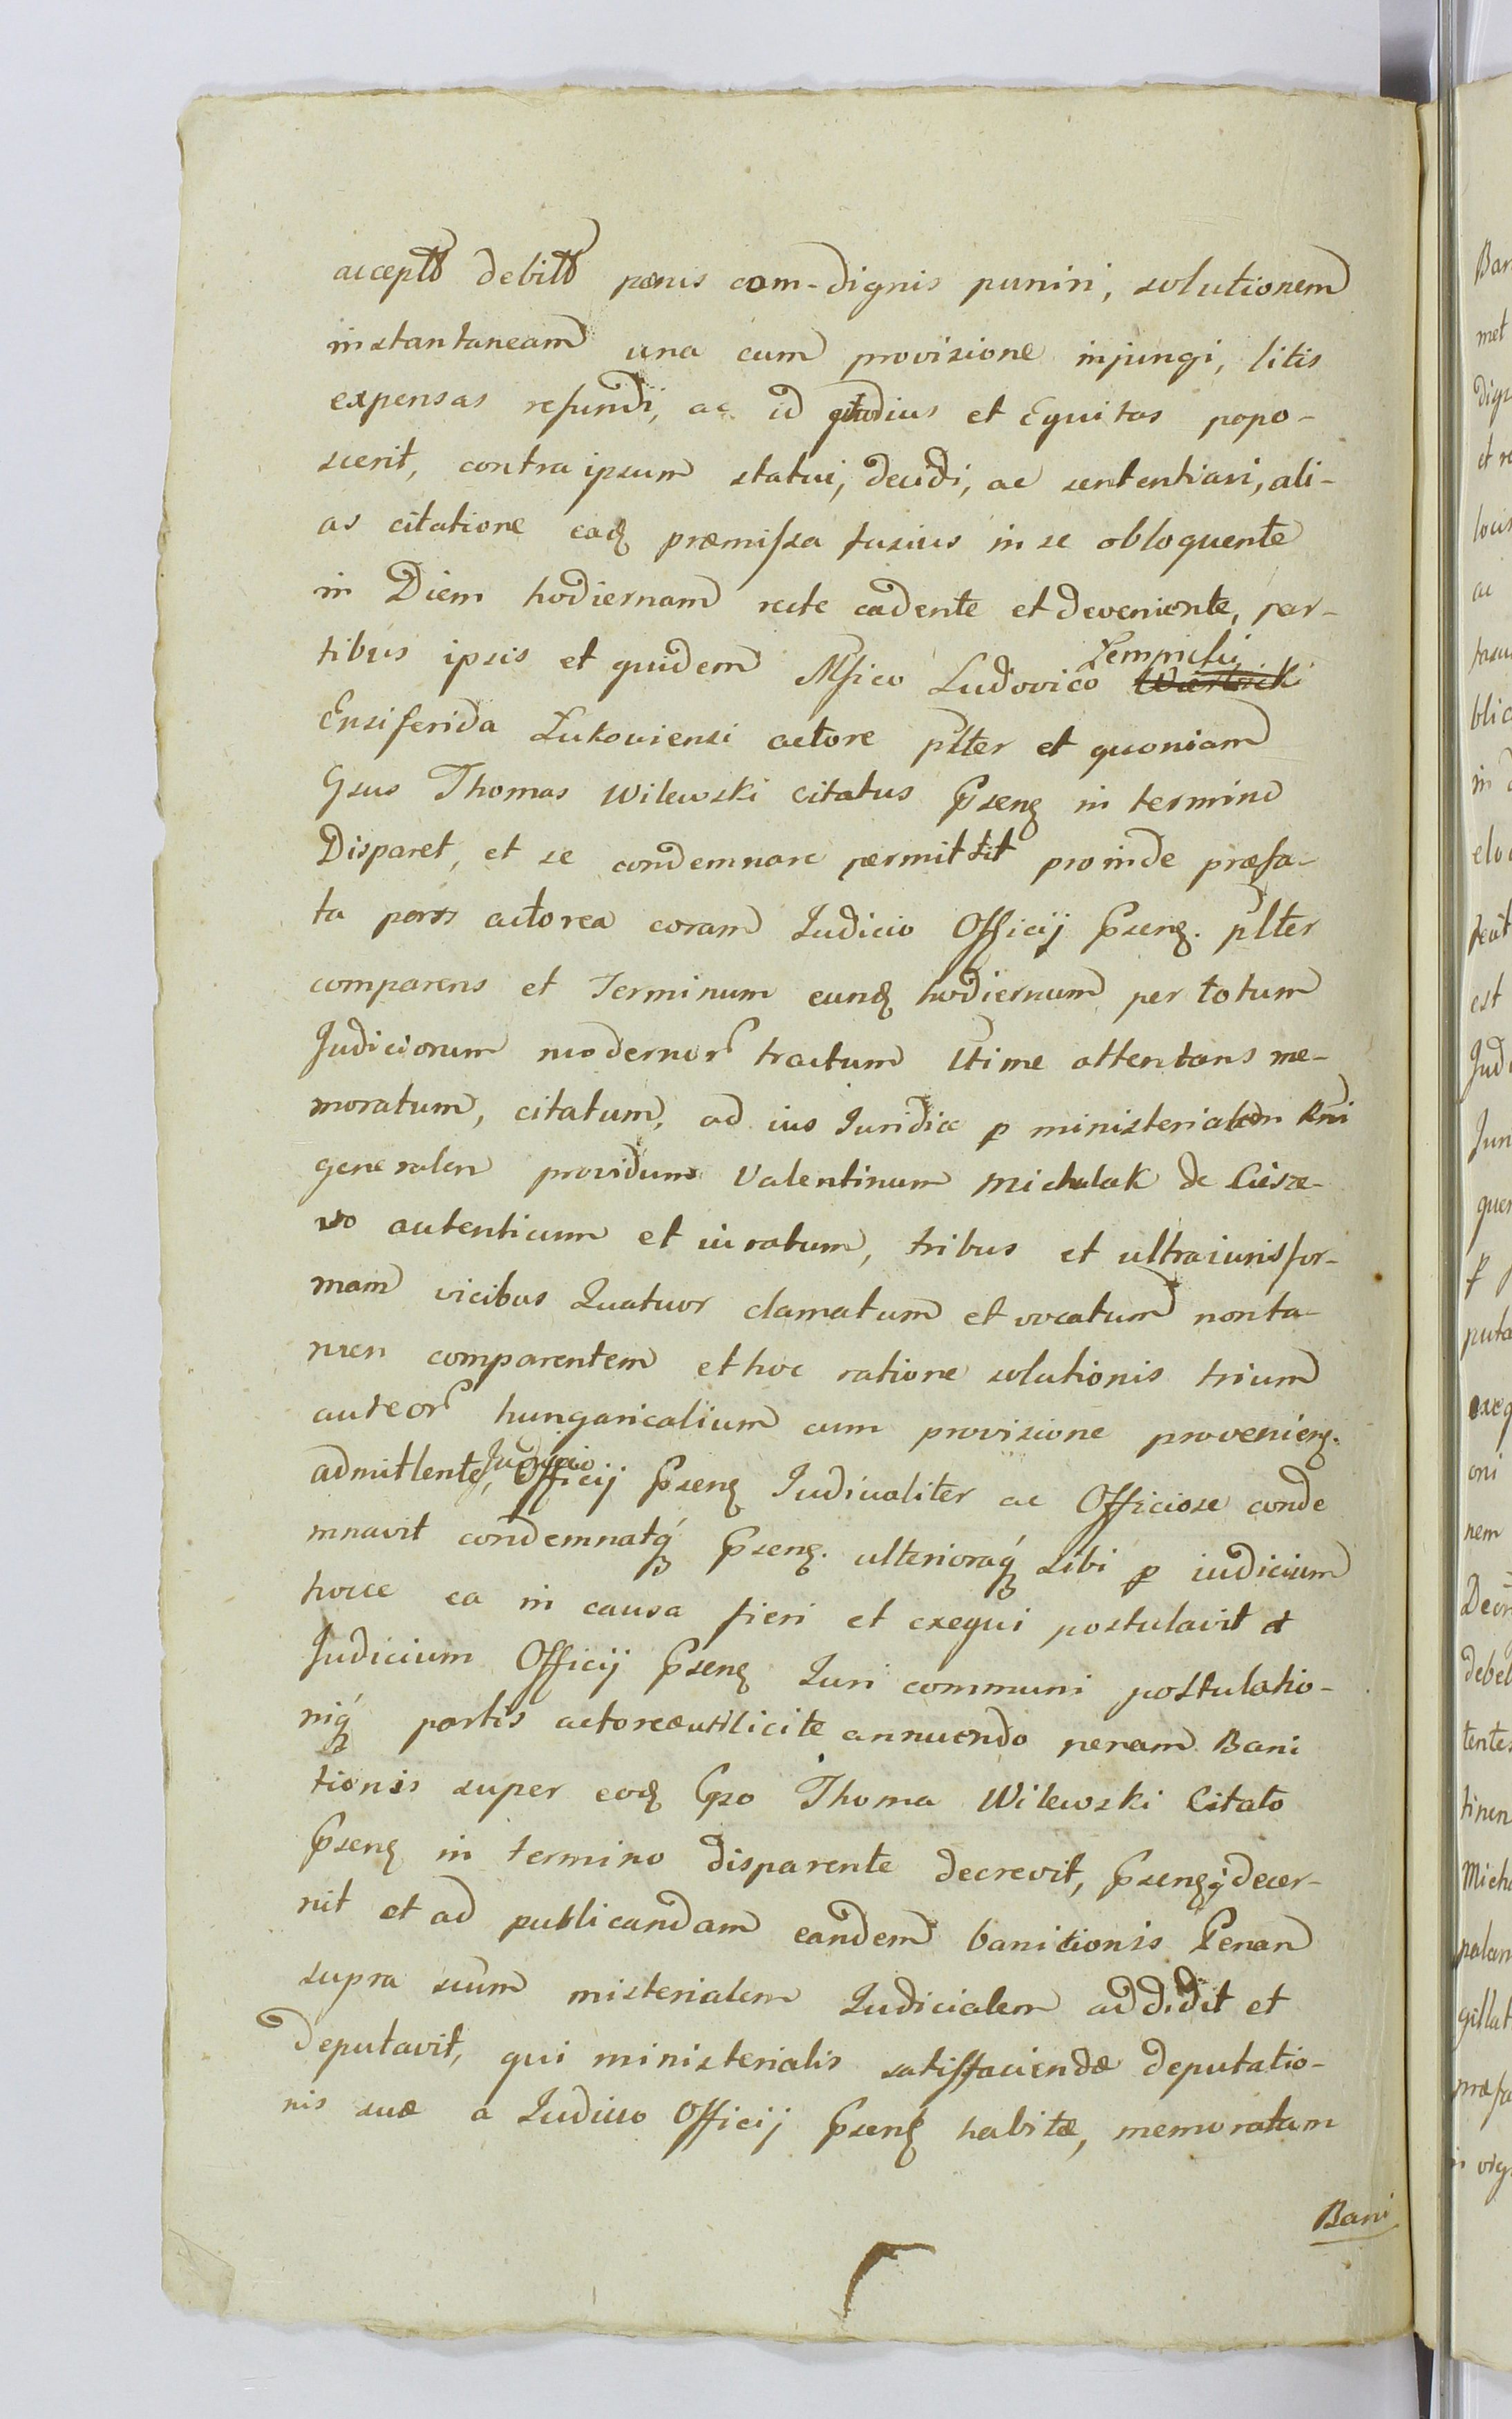 accepto debito pœnis com-dignis puniri, solutionem
instantaneam una cum provisione injungi, litis
expensas refundi, ac id qtod ius et Equitas popo-
scerit, contra ipsum statui, decidi, ac sententiari, ali-
as citatione eadq præmissa fusius in se obloquente
in Diem hodiernam recte cadente et deveniente, par-
tibus ipsis et quidem Mfico Ludovico Zempicki
Ensiferida Lukoviensi actore plter et quoniam
Gsus Thomas Wilewski citatus Psenq in termino
Disparet, et se condemnare permittit proinde præfa-
ta pars actorea coram Judicio Officij Psenq. plter
comparens et Terminum eunq hodiernum per totum
Judiciorum modernor tractum ltime attentans me-
moratum, citatum, ad ius Juridice p ministerialem Rni
generalem providum Valentinum Michalak de Ciesze-
wo autenticum et iuratum, tribus et ultra iuris for-
mam vicibus Quatuor clamatum et vocatum non ta-
men comparentem et hoc ratione solutionis trium
aureor hungaricalium cum provisione provenienq.
admittente, Judicio Officij Psenq Judicialiter ac Officiose conde
mnavit condemnatq Psenq. ulterioraq sibi p iudicium
hocce ea in causa fieri et exequi postulavit et
Judicium Officij Psenq Juri communi postulatio-
niq partis actoreæ uti licite annuendo penam Bani
tionis super eodq Gso Thoma Wilewski Citato
Psenq in termino disparente decrevit, Psenq q decer-
nit et ad publicandam eandem banitionis Penam
supra scium misterialem Judicialem addidit et
Deputavit, qui ministerialis satisfaciendæ deputatio-
nis suæ a Judicio Officij Psenq habitæ, memoratam
Bani